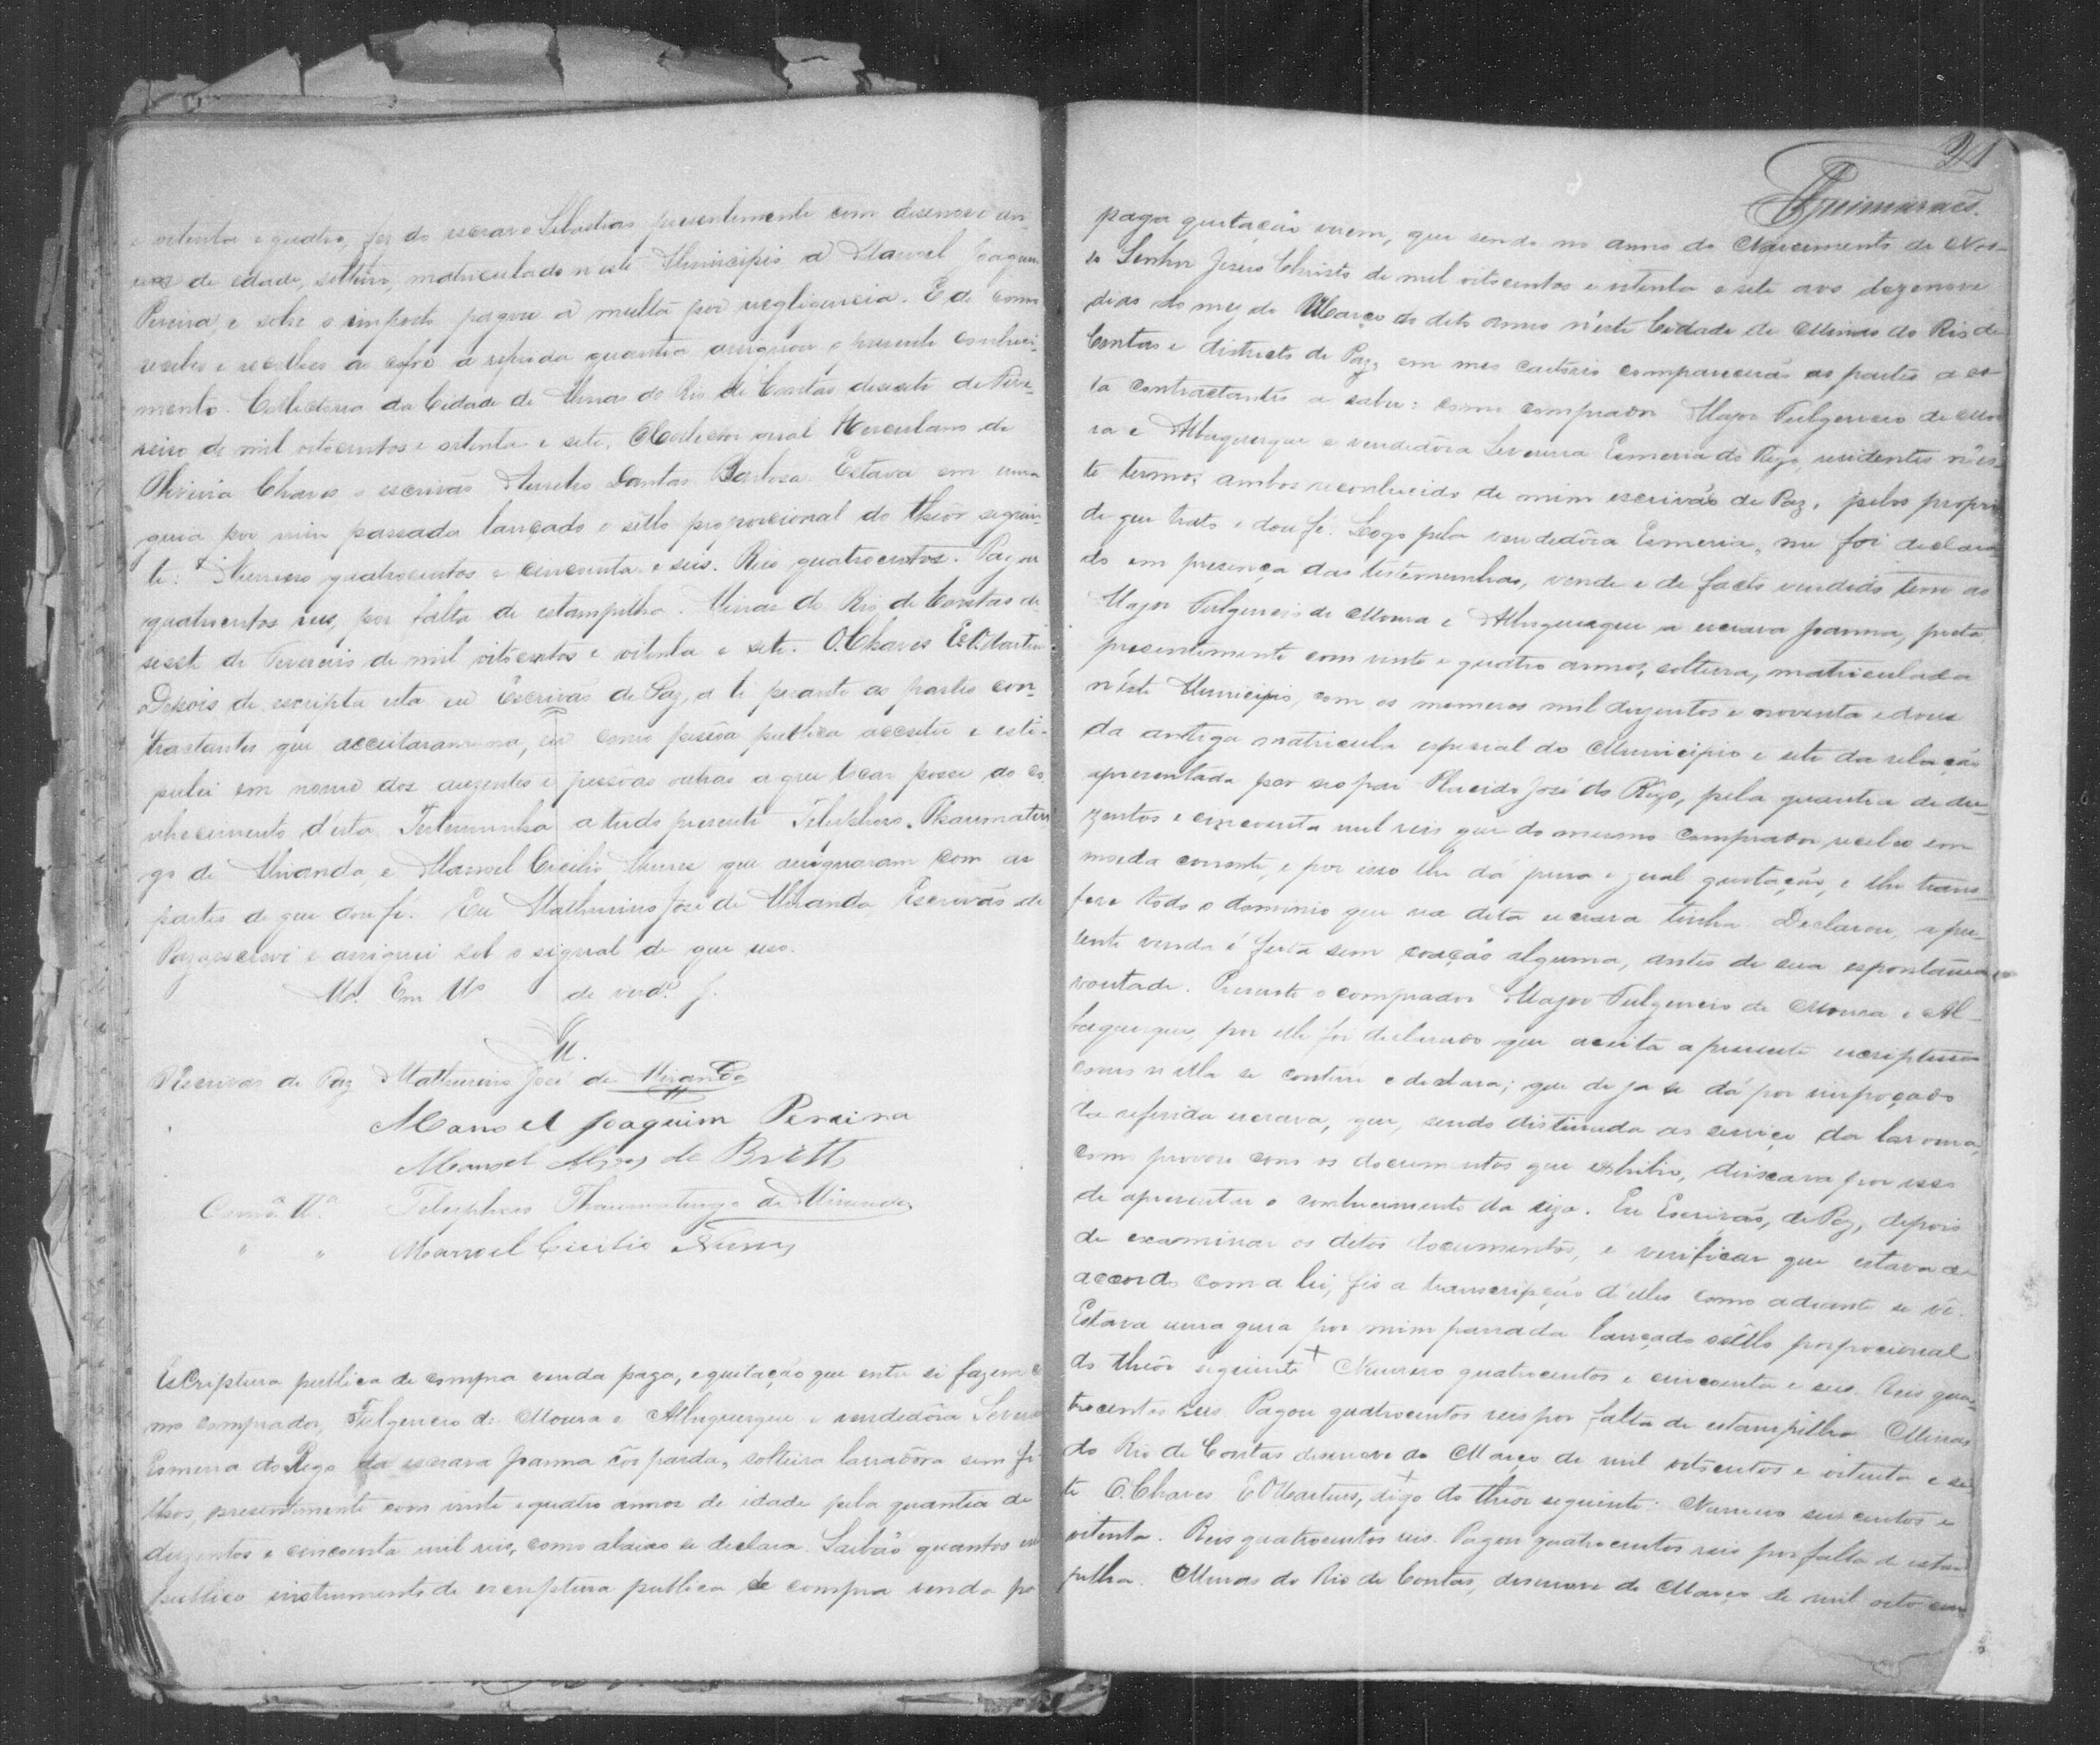 e oitenta e quatro, fez do escravo Sebastião presentemente com desenove an-
nos de edade, solteiro, matriculado n'este Municipio a Manoel Joaquim
Pereira, e sobre o imposto pagou a multa por negligencia. E de como
recebeo e recolheo ao cofre a referida quantia assignou o presente conheci-
mento. Collectoria da Cidade de Minas do Rio de Contas desesete de Feve-
reiro de mil oitocentos e oitenta e sete. O Collector Herculano de
Oliveira Chaves o escrivão Aurelio Dantas Barbosa. Estava em uma
guia por mim passada lançado o sello proporcional do theôr seguin-
te: Numero quatrocentos e cincoenta e seis. Reis quatrocentos. Pagou
quatrocentos reis, por falta de estampilha. Minas do Rio de Contas de
sesete de Fevereiro de mil oitocentos e oitenta e sete. O. Chaves E. O. Martins
Depois de escripta esta eu Escrivão de Paz, a li perante as partes con-
tractantes que acceitaram-na, eu como pessôa publica acceitei e esti-
pulei em nome dos auzentes e pessôas outras a que tocar possa do co-
nhecimento d'esta. Testemunha a tudo presente Telesphoro Thaumatur
go de Miranda, e Manoel Cicilio Nunes que assignaram com as
partes de que dou fé. Eu Mathurino José de Miranda Escrivão de
Paz escrevi e assignei sob o signal de que uso.
Em de verd.e
M.
O Escrivão de Paz Mathurino José de Miranda
Manoel Joaquim Pereira
Manoel Alves de Britto
Como Ta. Telesphoro Thaumaturgo de Miranda
" " Manoel Cicilio Nunes
Escriptura publica de compra venda paga, e quitação que entre si fazem co
mo comprador, Fulgencio de Moura e Albuquerque e vendedôra Severi
Esmeria do Rego da escrava Joanna côr parda, solteira lavradôra sem fi
lhos, presentimente com vinte e quatro annos de idade pela quantia de
duzentos e cincoenta mil reis, como abaixo se declara. Saibão quantos este
publico instrumento de escriptura publica de compra venda pa
241
Guimaraes.
paga quitação virem, que sendo no anno do Nascimento de Nos-
so Senhor Jesus Christo de mil oitocentos e oitenta e sete aos dezenove
dias do mez de Março do dito anno n'esta Cidade de Minas do Rio de
Contas e districto de Paz, em meo cartorio comparecerão as partes a es-
ta contractantes a saber: como comprador Major Fulgencio de Mou
ra e Albuquerque e vendedôra Severina Esmeria do Rego, residentes n'es
te termo, ambos reconhecido de mim escrivão de Paz, pelos proprio
de que trato e dou fé. Logo pela vendedôra Esmeria, me foi declara
do em presença das testemunhas, vende e de facto vendido tem ao
Major Fulgencio de Moura e Albuquerque a escrava Joanna, preta
presentimente com vinte e quatro annos, solteira, matriculada
n'este Municipio, com os numeros mil duzentos e noventa e dous
da antiga matricula espesial do Municipio e sete da relação
apresentada por seo pai Placido José do Rego, pela quantia de du-
zentos e cincoenta mil reis que do mesmo comprador recebeo em
moeda corrente, e por isso lhe dá plena e geral quitação, e lhe trans-
fere todo o dominio que na dita escrava tinha. Declarou, a pre-
sente venda é feita sem coação alguma, antes de sua espontanea
vontade. Presente o comprador Major Fulgencio de Moura e Al-
buquerque, por elle foi declarado que aceita a presente escriptura
como n'ella se contém e declara; que de ja se dá por empoçado
da referida escrava, que, sendo distinada ao serviço da lavoura,
como provou com os documentos que exhibio, deixava por isso
de apresentar o conhecimento da siza. Eu Escrivão, de Paz, depois
de examinar os ditos documentos, e verificar que estava de
accordo com a lei, fis a transcripção d'elles como adiante se vê.
Estava uma guia por mim passada lançado o sêllo proporcional
do theôr seguinte + Numero quatrocentos e cincoenta e seis. Reis qua-
trocentos reis. Pagou quatrocentos reis por falta de estampilha. Minas
do Rio de Contas desenove de Março de mil oitocentos e oitenta e se
te O. Chaves E O Martins, + digo do theôr seguinte. Numero seis centos e
oitenta. Reis quatrocentos reis. Pagou quatrocentos reis por falta d estam
pilha. Minas do Rio de Contas, desenove de Março de mil oito cen